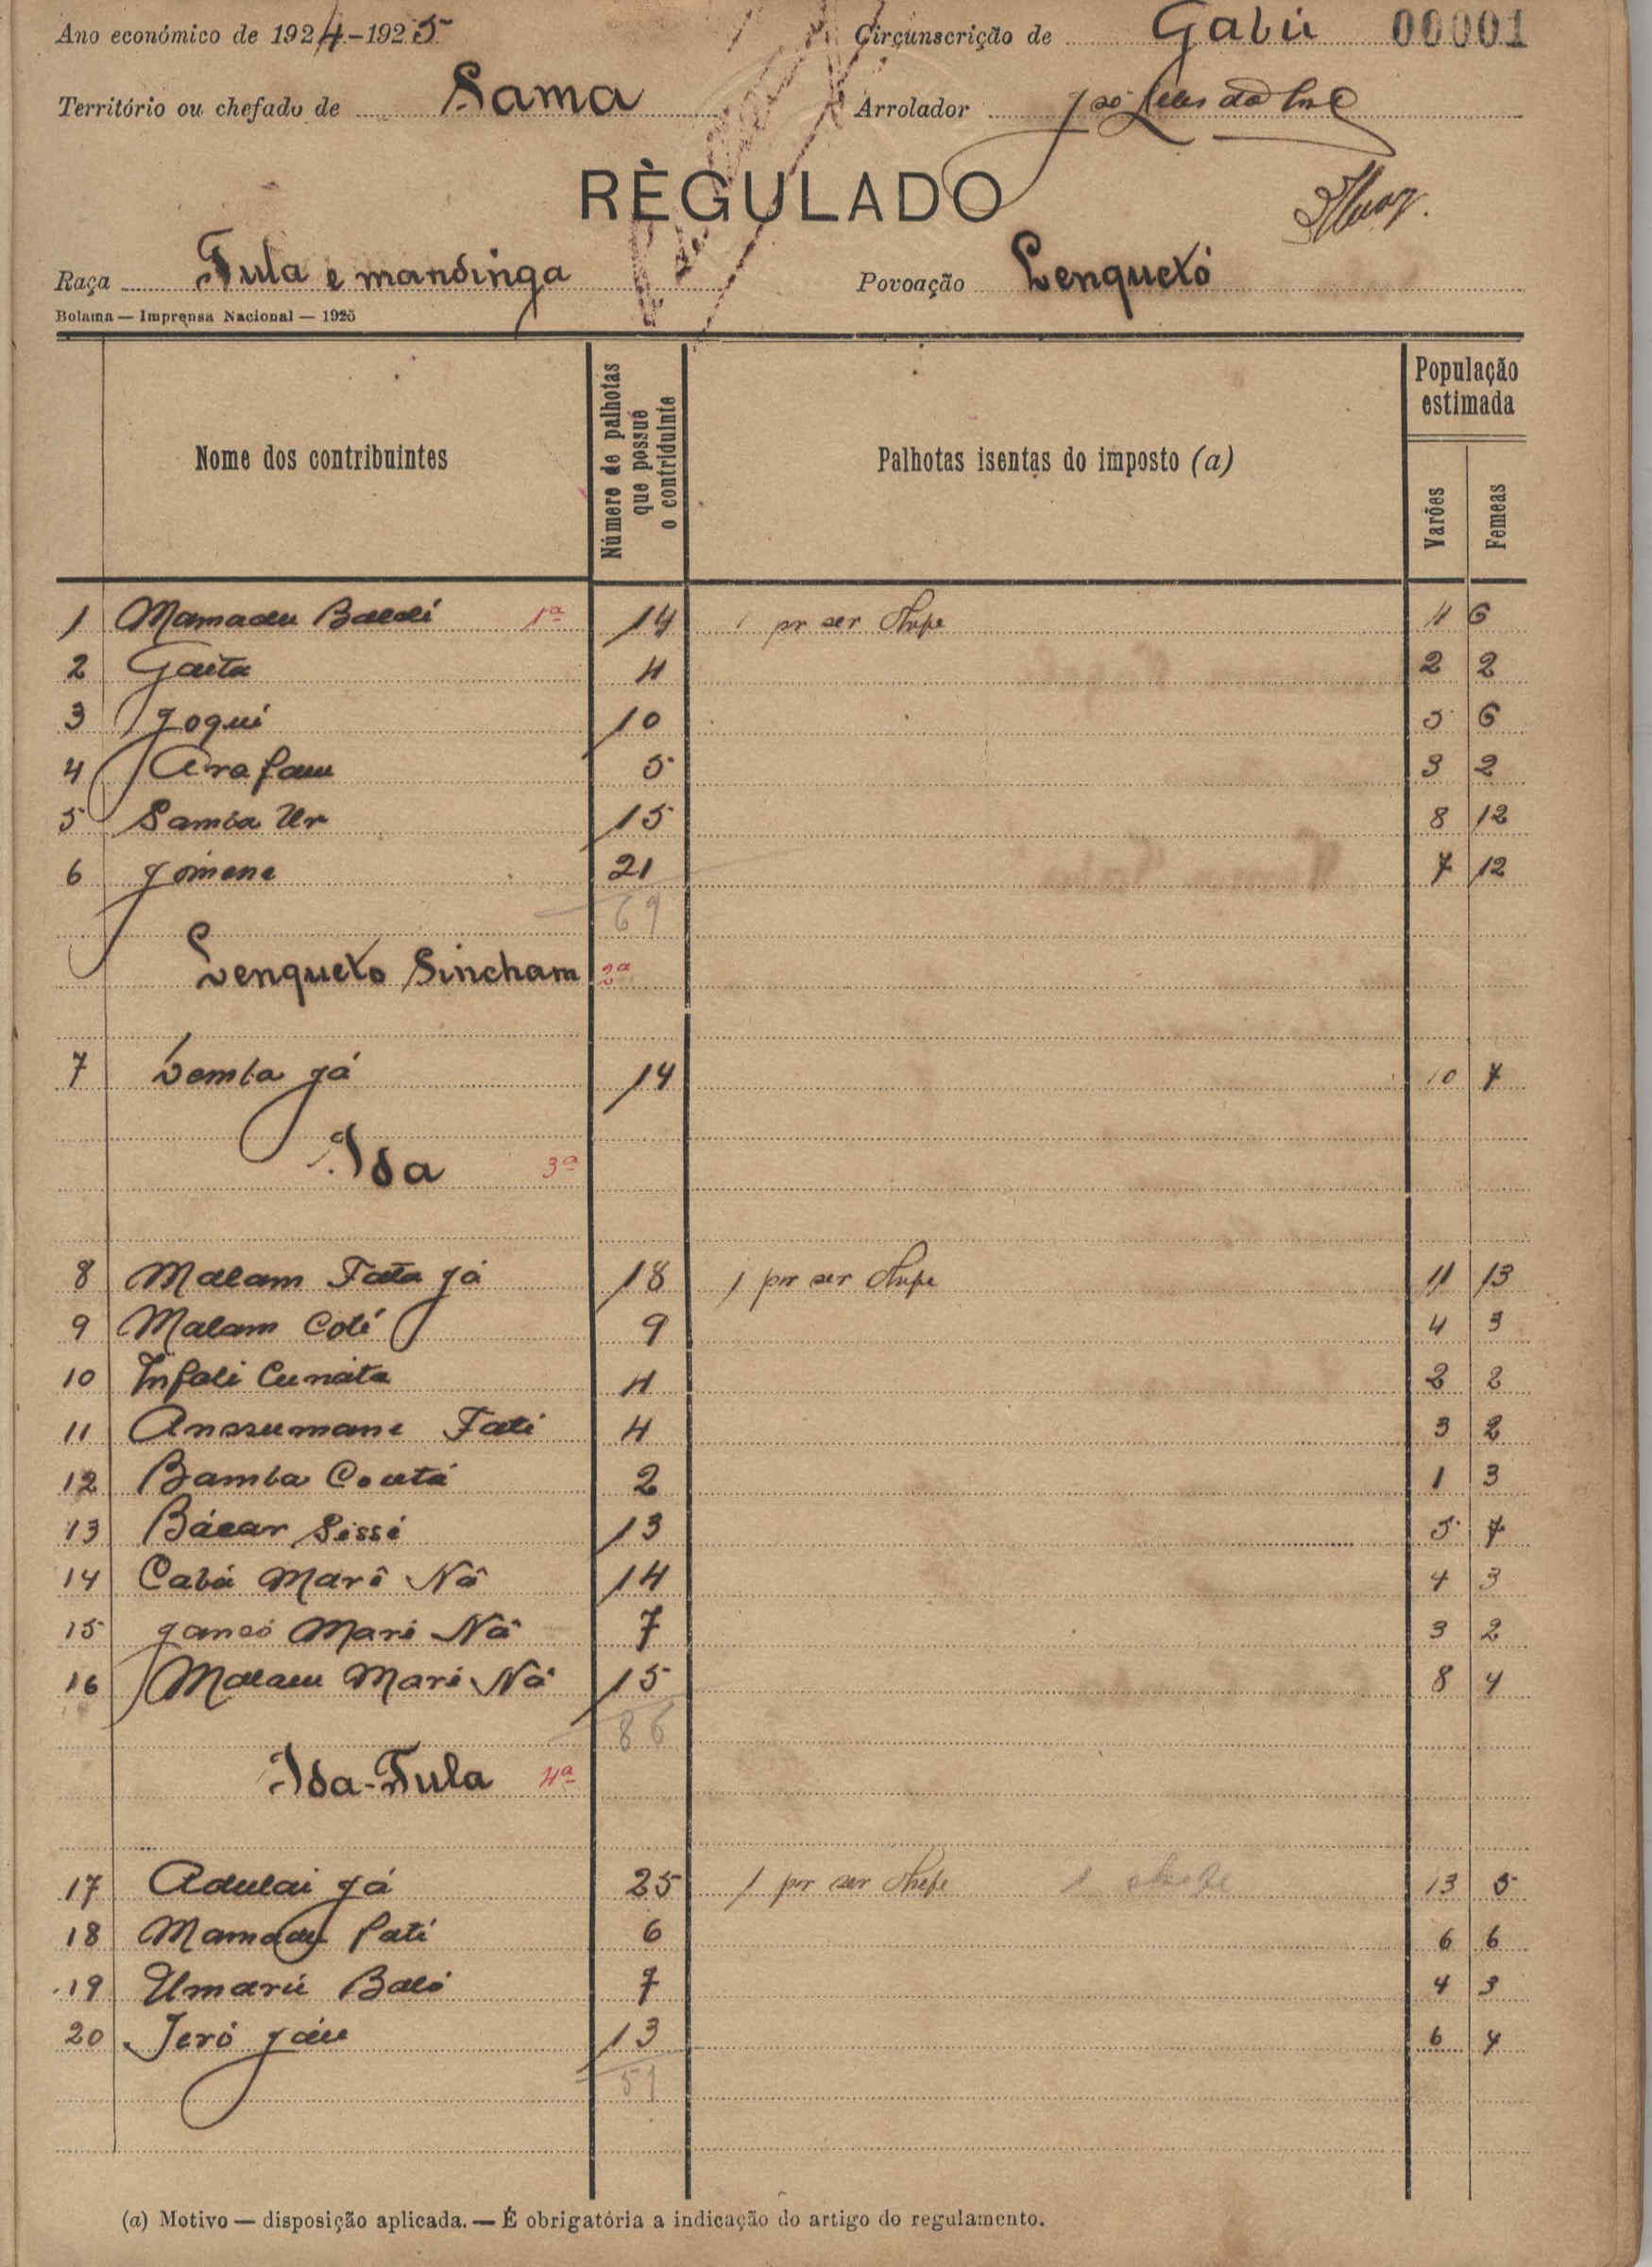 Ano económico de 1924-1925 Circunscrição de Gabú 00001
Território ou chefado de Sama Arrolador
RÈGULADO
Raça Fula e mandinga Povoação Lenquetó
Bolama — Imprensa Nacional — 1925
Nome dos contribuintes Número de palhotas que possué o contriduinte Palhotas isentas do imposto (a) População estimada Varões Femeas
1 Mamadu Baldé 1ª 14 1 por ser Chefe 4 6
2 Gaeta 4 2 2
3 Joqui 10 5 6
4 Arafam 5 3 2
5 Samba Ur 15 8 12
6 Jomene 21 7 12
69
Lenqueto Sincham 2ª
7 Demba Já 14 10 7
Ida 3ª
8 Malam Fata Já 18 1 por ser Chefe 11 13
9 Malam Coli 9 4 3
10 Infali Cunata 4 2 2
11 Anssumane Fati 4 3 2
12 Bamba Coutá 2 1 3
13 Bácar Sissé 13 5 7
14 Cabá Marô Nô 14 4 3
15 Mané Nô 7 3 2
16 Malam Mané Nô 15 8 4
86
Ida-Fula 4ª
17 Adulai Já 25 1 por ser Chefe 1 chefe 13 5
18 Mamadu Pati 6 6 6
19 Umarú Baló 7 4 3
20 Jeró Jáu 13 6 4
51
(a) Motivo — disposição aplicada. — É obrigatória a indicação do artigo do regulamento.